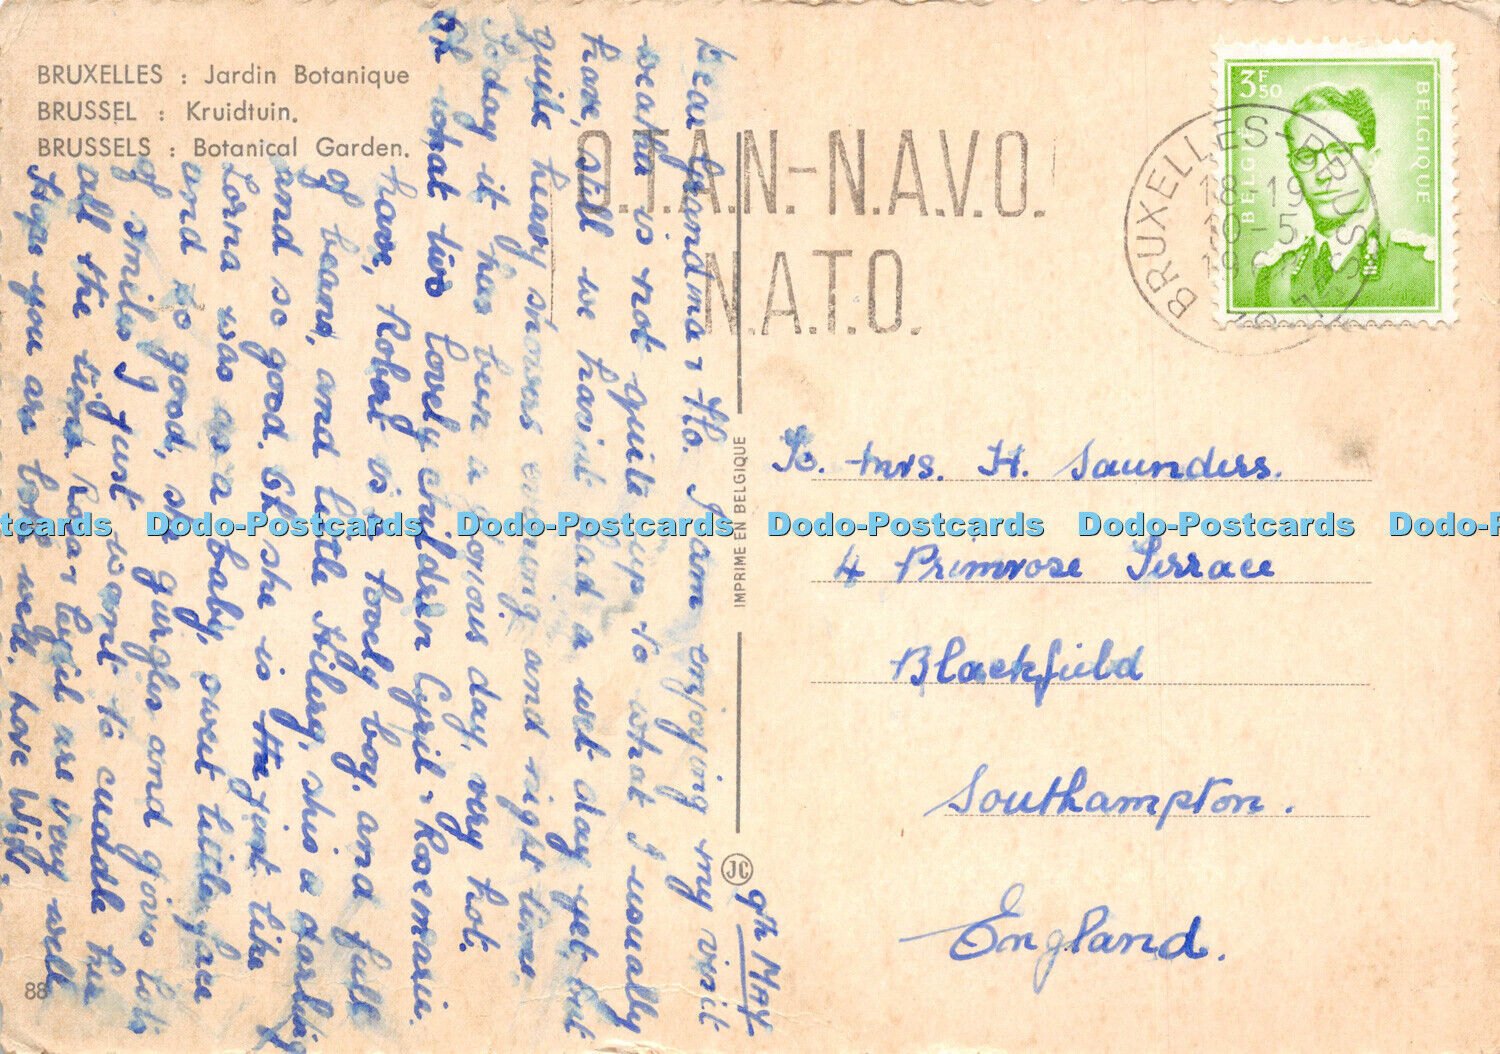 BRUXELLES : Jardin Botanique
BRUSSEL : Kruidtuin.
BRUSSELS : Botanical Garden.
9th May
Dear Grandma & Flo. I am enjoying my visit
weather is not quite up to what I usually
have, still we havint had a wet day yet, but
quite heavy showers evening and night time.
To day it has been a glorious day, very hot.
Oh what two lovely children Cyril & Rosemarie
have, Robert is a lovely boy, and full
of beans, and little Hilary, shis a darling
and so good. Oh she is the first like
Lorna was as a baby, sweet little face
and so good, she gurgles and gives lots
of smiles I just want to cuddle her
all the time. Ro & Cyril are very well
Hope you are both well. Love Win.
88
IMPRIME EN BELGIQUE
JC
O.T.A.N.-N.A.V.O.
N.A.T.O.
BRUXELLES-BRUSSEL
18-19
10-5
3F50
BELGIE BELGIQUE
To. Mrs. H. Saunders.
4 Primrose Terrace
Blackfield
Southampton.
England.
Dodo-Postcards Dodo-Postcards Dodo-Postcards Dodo-Postcards